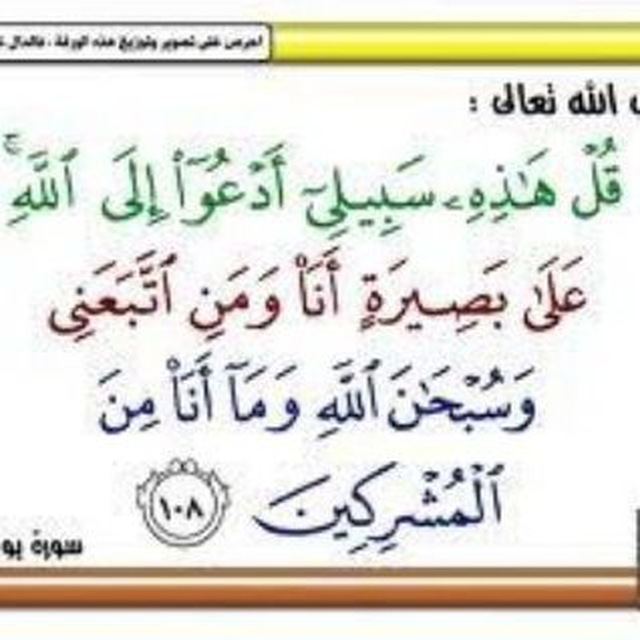 احرص على تصوير وتوزيع هذه الورقة ، فالدال
الله تعالى :
قُلْ هَـٰذِهِۦ سَبِيلِىٓ أَدْعُوٓا۟ إِلَى ٱللَّهِ ۚ
عَلَىٰ بَصِيرَةٍ أَنَا۠ وَمَنِ ٱتَّبَعَنِى
وَسُبْحَـٰنَ ٱللَّهِ وَمَآ أَنَا۠ مِنَ
ٱلْمُشْرِكِينَ ١٠٨
سورة يو